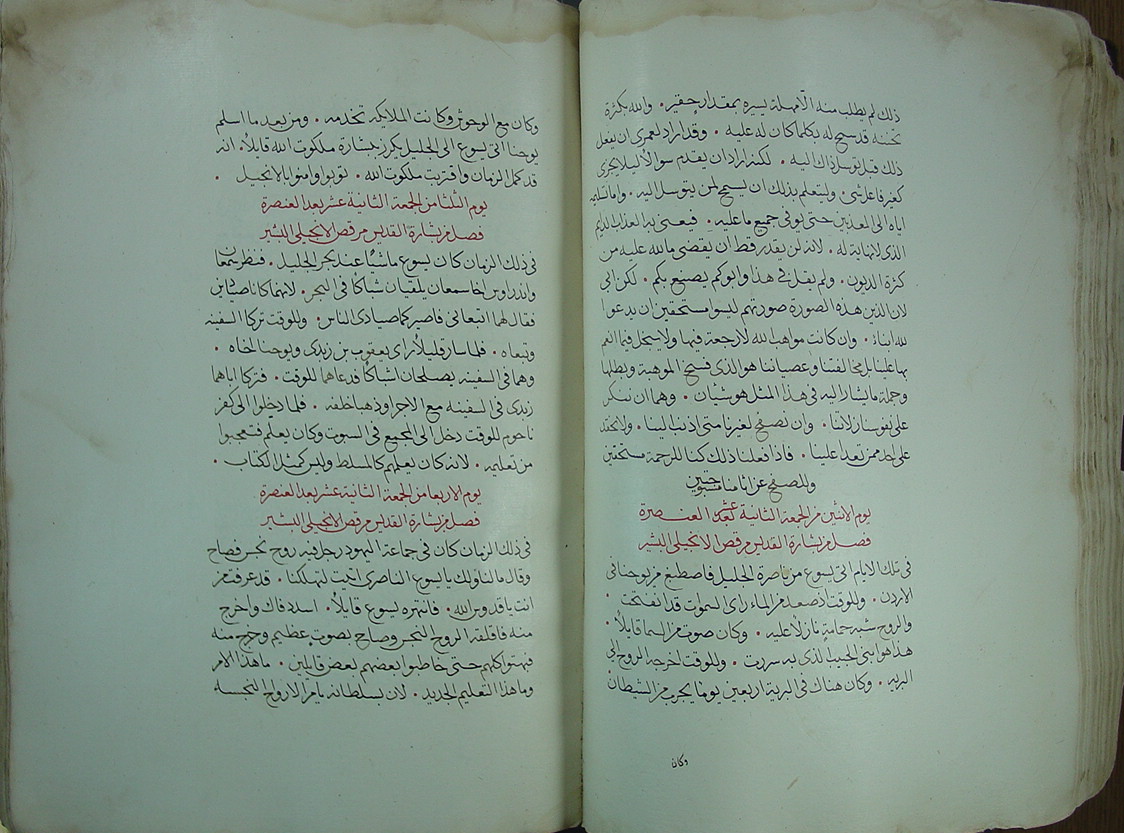 ذلك لم يطلب منه الا مهلة يسيره بمقدار حقير . والله بكثرة
تحننه قد سمح له بكلما كان له عليه . وقد اراد لعمري ان يفعل
ذلك قبل توسل ذاك اليه . لكنه اراد ان يقدم سوالا ليلا يجزى
كغير فاعل شي . وليتعلم بذلك ان يسمح لمن يتوسل اليه . واما تسليمه
اياه الى المعذبين حتى يوفى جميع ما عليه . فيعنى به العذاب الدايم
الذى لا نهاية له . لانه لن يقدر قط ان يقضى ما لله عليه من
كثرة الديون . ولم يقل فى هذا وابوكم يصنع بكم . لكن ابى
لان الذين هذه الصورة صورتهم ليسوا مستحقين ان يدعوا
لله ابناء . وان كانت مواهب الله لا رجعة فيها ولا يسجل فيما انعم
بها علينا بل مخالفتنا وعصياننا هو الذى فسخ الموهبة وبطلها
وجملة ما يشار اليه فى هذا المثل هو شيان . وهما ان نفكر
على نفوسنا زلاتنا . وان نصفح لغيرنا متى اذنب الينا . ولا نحقد
على احد ممن تعدا علينا . فاذا فعلنا ذلك كنا للرحمة مستحقين
وللصفح عن اثامنا مستوجبين
يوم الاثنين من الجمعة الثانية عشر بعد العنصرة
فصل من بشارة القديس مرقص الانجيلى البشير
فى تلك الايام اتى يسوع من ناصرة الجليل فاصطبغ من يوحنا فى
الاردن . وللوقت اذ صعد من الماء راى السموات قد انفتحت .
والروح شبه حمامة نازلا عليه . وكان صوت من السما قايلا .
هذا هو ابنى الحبيب الذى به سررت . وللوقت اخرجه الروح الى
البريه . وكان هناك فى البرية اربعين يوما يجرب من الشيطان
وكان
وكان مع الوحوش وكانت الملايكه تخدمه . ومن بعد ما اسلم
يوحنا اتى يسوع الى الجليل يكرز ببشارة ملكوت الله قايلا . انه
قد كمل الزمان واقتربت ملكوت الله . توبوا وامنوا بالانجيل .
يوم الثلثا من الجمعة الثانية عشر بعد العنصرة
فصل من بشارة القديس مرقص الانجيلى البشير
فى ذلك الزمان كان يسوع ماشيا عند بحر الجليل . فنظر سمعان
واندراوس اخا سمعان يلقيان شباكا فى البحر . لانهما كانا صيادين
فقال لهما اتبعانى فاصيركما صيادى الناس . وللوقت تركا السفينه
وتبعاه . فلما سار قليلا راى يعقوب بن زبدى ويوحنا اخاه .
وهما فى السفينه يصلحان اشباكا فدعاهما للوقت . فتركا اباهما
زبدى فى السفينه مع الاجرا وذهبا خلفه . فلما دخلوا الى كفر
ناحوم للوقت دخل الى المجمع فى السبوت وكان يعلم فتعجبوا
من تعليمه . لانه كان يعلمهم كالمسلط وليس كمثل الكتاب .
يوم الاربعا من الجمعة الثانية عشر بعد العنصرة
فصل من بشارة القديس مرقص الانجيلى البشير
فى ذلك الزمان كان فى جماعة اليهود رجل فيه روح نجس فصاح
وقال ما لنا ولك يا يسوع الناصرى اتيت لتهلكنا . قد عرفت من
انت يا قدوس الله . فانتهره يسوع قايلا . اسدد فاك واخرج
منه فاقلقه الروح النجس وصاح بصوت عظيم وخرج منه
فبهتوا كلهم حتى خاطبوا بعضهم لبعض قايلين . ما هذا الامر
وما هذا التعليم الجديد . لان بسلطانه يامر الارواح النجسه